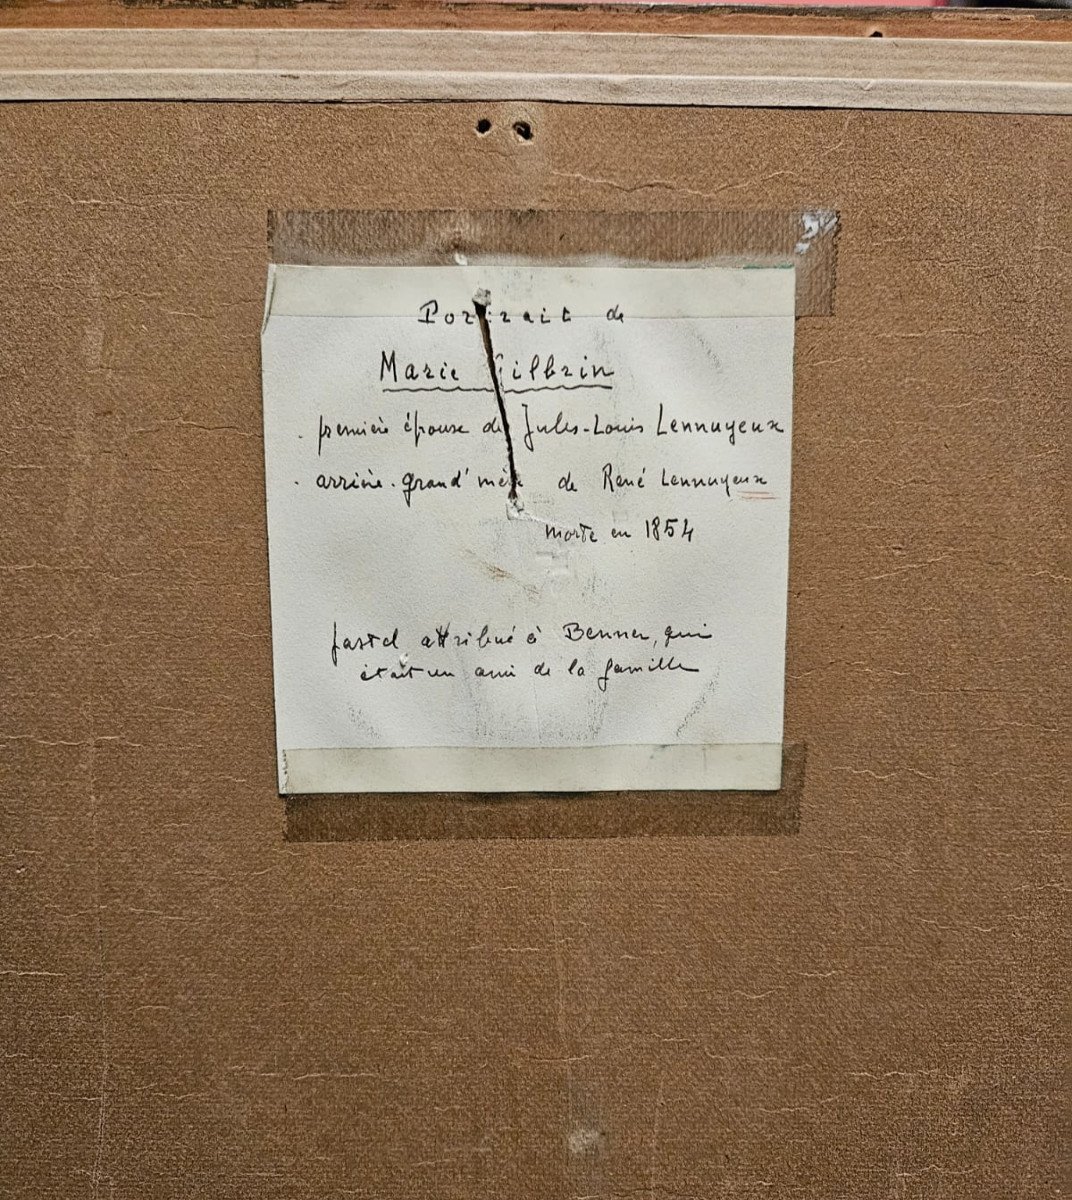 Portrait de
Marie Gilbrin
. première épouse de Jules-Louis Lennuyeux
. arrière-grand'mère de René Lennuyeux
morte en 1854
pastel attribué à Benner, qui
était un ami de la famille